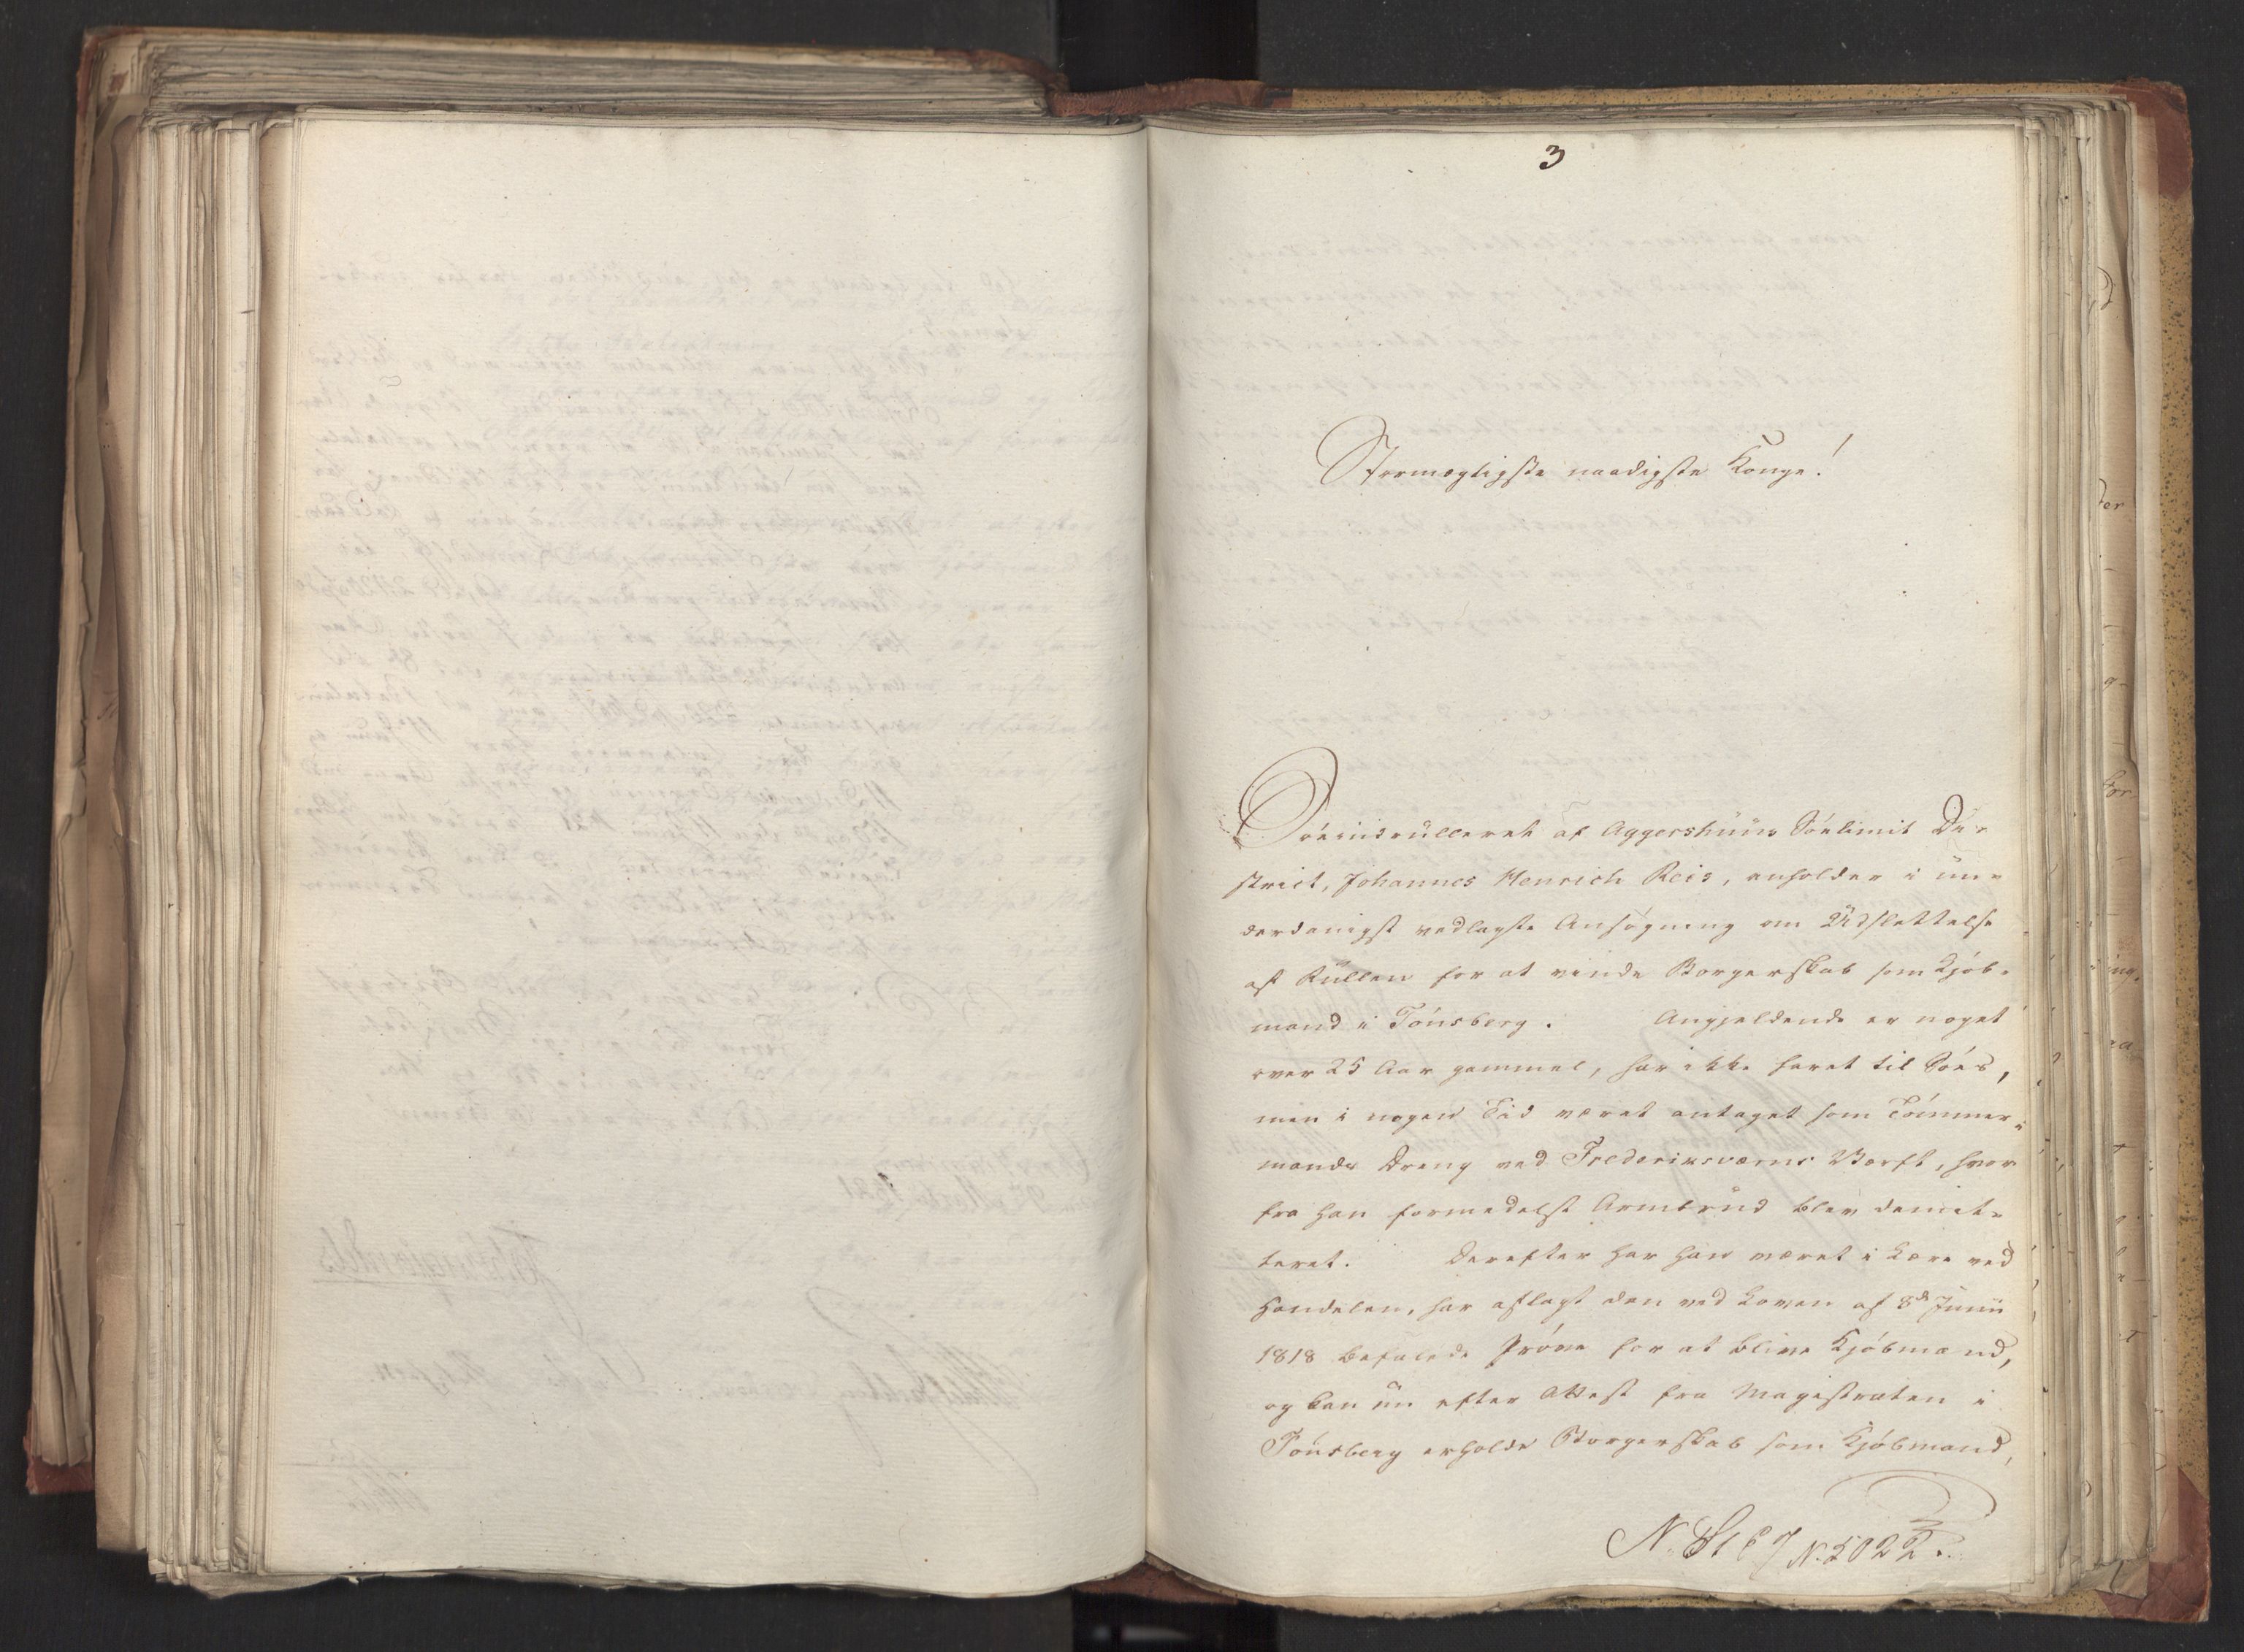 3
Stormægtigste naadigste Konge!
Söeindrulleret af Aggershuus Söelimit Di-
strict, Johannes Henrich Reis, anholder i un-
derdanigst vedlagte Ansögning om Udslettelse
af Rullen for at vinde Borgerskab som Kjöb-
mand i Tönsberg. Angjeldende er noget
over 25 Aar gammel, har ikke faret til Söes,
men i nogen Tid været antaget som Tömmer-
mands Dreng ved Frederiksværns Værft, hvor
fra han formedelst Armbrud blev demit-
teret. Derefter har han været i Lære ved
Handelen, har aflagt den ved Loven af 8de Junii
1818 befalede Pröve for at blive Kjöbmand,
og kan nu efter Attest fra Magistraten i
Tönsberg erholde Borgerskab som Kjöbmand,
N. 5022.